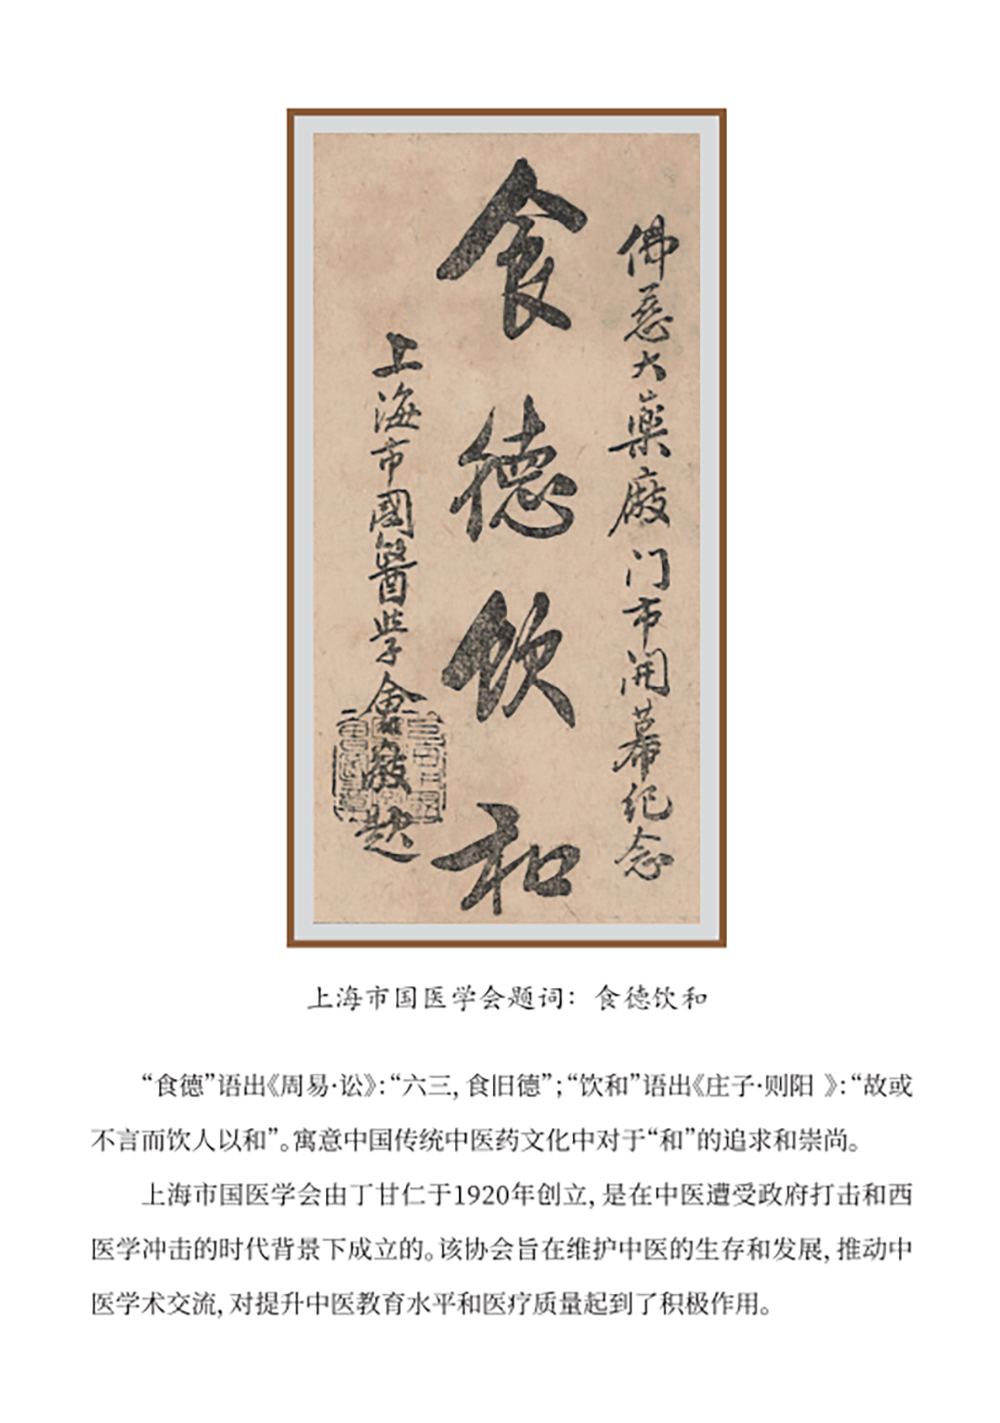 佛慈大藥廠门市開幕纪念
食德飲和
上海市國醫学會敬题
上海市国医学会题词：食德饮和
“食德”语出《周易·讼》：“六三，食旧德”；“饮和”语出《庄子·则阳 》：“故或
不言而饮人以和”。寓意中国传统中医药文化中对于“和”的追求和崇尚。
上海市国医学会由丁甘仁于1920年创立，是在中医遭受政府打击和西
医学冲击的时代背景下成立的。该协会旨在维护中医的生存和发展，推动中
医学术交流，对提升中医教育水平和医疗质量起到了积极作用。